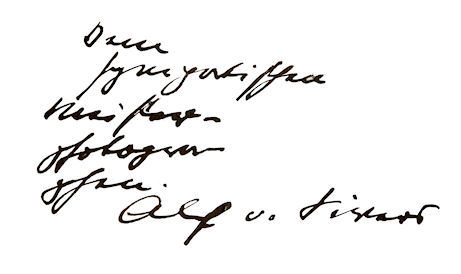 Dem
sympathischen
Meister-
photogra-
phen.
Alf v. Sivers